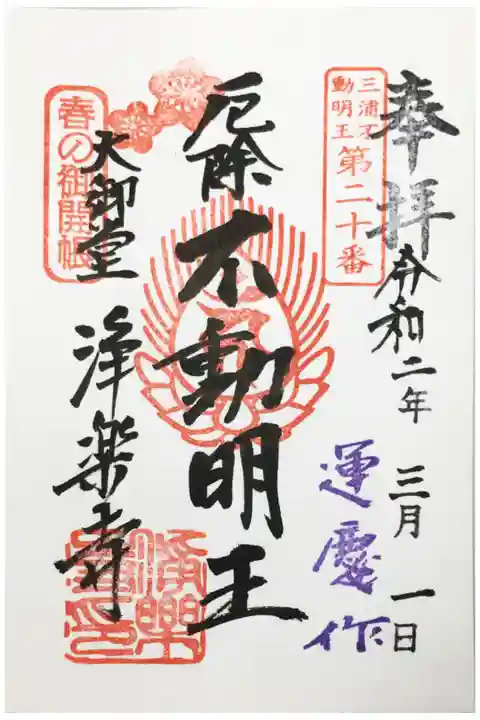 奉拝
令和二年 三月 一日
三浦不
動明王
第二十番
運慶作
厄除 不動明王
春の御開帳
大御堂
浄楽寺